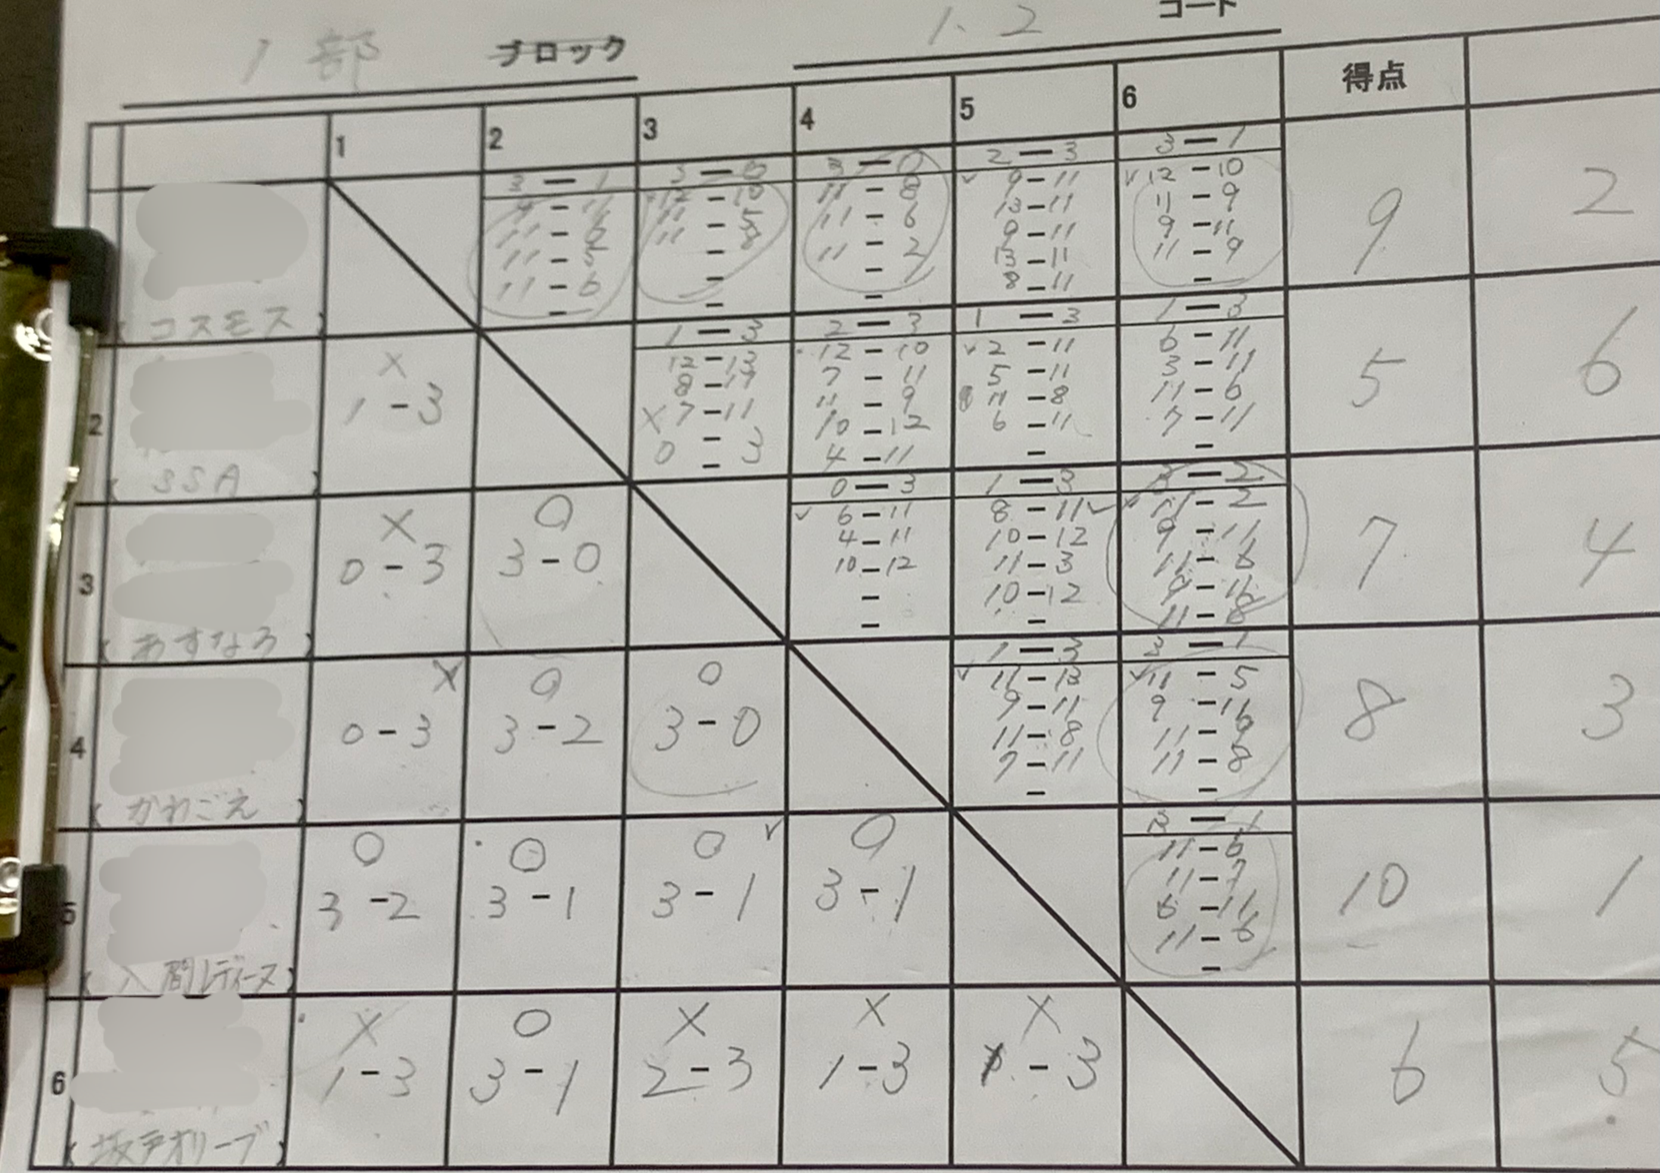 1部 ブロック 1.2 コート
1 2 3 4 5 6 得点
3-1 3-0 3-0 2-3 3-1
11-8 9-11 12-10
11-5 11-6 13-11 11-9
11-8 11-2 9-11 9-11
11-5 13-11 11-9
11-6 8-11
9 2
(コスモス)
2
× 1-3
1-3 2-3 1-3 1-3
12-13 12-10 2-11 6-11
7-11 5-11 3-11
×7-11 11-9 11-8 11-6
0-3 10-12 6-11 7-11
4-11
5 6
(SSA)
3
× 0-3
○ 3-0
0-3 1-3 3-2
6-11 8-11 11-2
4-11 10-12 9-11
10-12 11-3
10-12
11-8
7 4
(あすなろ)
4
× 0-3
○ 3-2
○ 3-0
1-3 3-1
11-13 11-5
9-11 9-11
11-8 11-9
7-11 11-8
8 3
(かわごえ)
5
○ 3-2
○ 3-1
○ 3-1
○ 3-1
3-1
11-6
11-7
6-11
11-6
10 1
(入間レディース)
6
× 1-3
○ 3-1
× 2-3
× 1-3
× 1-3
6 5
(坂戸オリーブ)